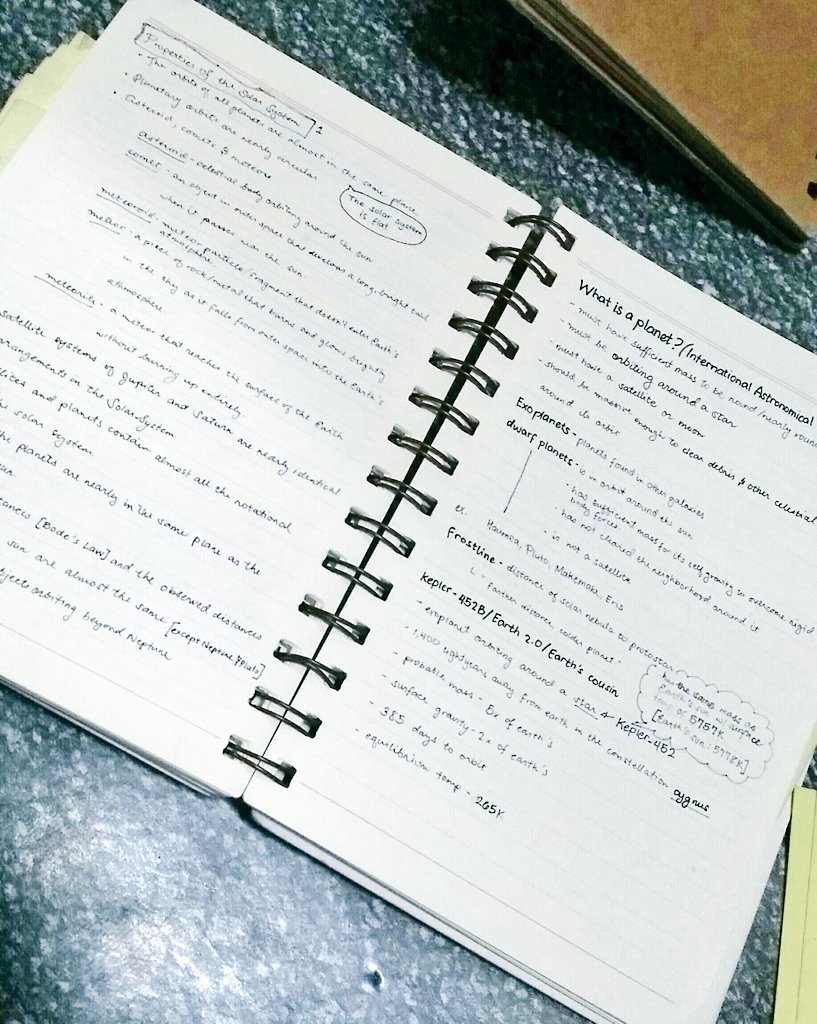 Properties of the Solar System 1
• The orbits of all planets are almost in the same plane
• Planetary orbits are nearly circular
• Asteroid, comets & meteors
The solar system
is flat
asteroid - celestial body orbiting around the sun
comet - an object in outer space that develops a long, bright tail
when it passes near the sun
meteoroid - meteor particle/fragment that doesn't enter Earth's
atmosphere
meteor - a piece of rock/metal that burns and glows brightly
in the sky as it falls from outer space into the Earth's
atmosphere
meteorite - a meteor that reaches the surface of the Earth
without burning up entirely
satellite systems of Jupiter and Saturn are nearly identical
arrangements in the Solar System
and planets contain almost all the rotational
solar system
the planets are nearly in the same plane as the
[Bode's Law] and the observed distances
sun are almost the same [except Neptune & Pluto]
orbiting beyond Neptune
What is a planet? (International Astronomical
- must have sufficient mass to be round/nearly round
- must be orbiting around a star
- must have a satellite or moon
- should be massive enough to clear debris & other celestial
around its orbit
Exoplanets - planets found in other galaxies
dwarf planets - is in orbit around the sun
- has sufficient mass for its self gravity to overcome rigid
body forces
- has not cleared the neighborhood around it
- is not a satellite
ex. Haumea, Pluto, Makemake, Eris
Frostline - distance of solar nebula to protostar
L = farther distance, colder planet -
Kepler-452B/Earth 2.0/Earth's cousin
- exoplanet orbiting around a star Kepler-452
has the same mass as
Earth's sun w/ surface
temp of 5757K
[Earth's sun: 5778K]
- 1,400 lightyears away from earth in the constellation cygnus
- probable mass - 5x of earth's
- surface gravity - 2x of earth's
- 385 days to orbit
- equilibrium temp - 265K